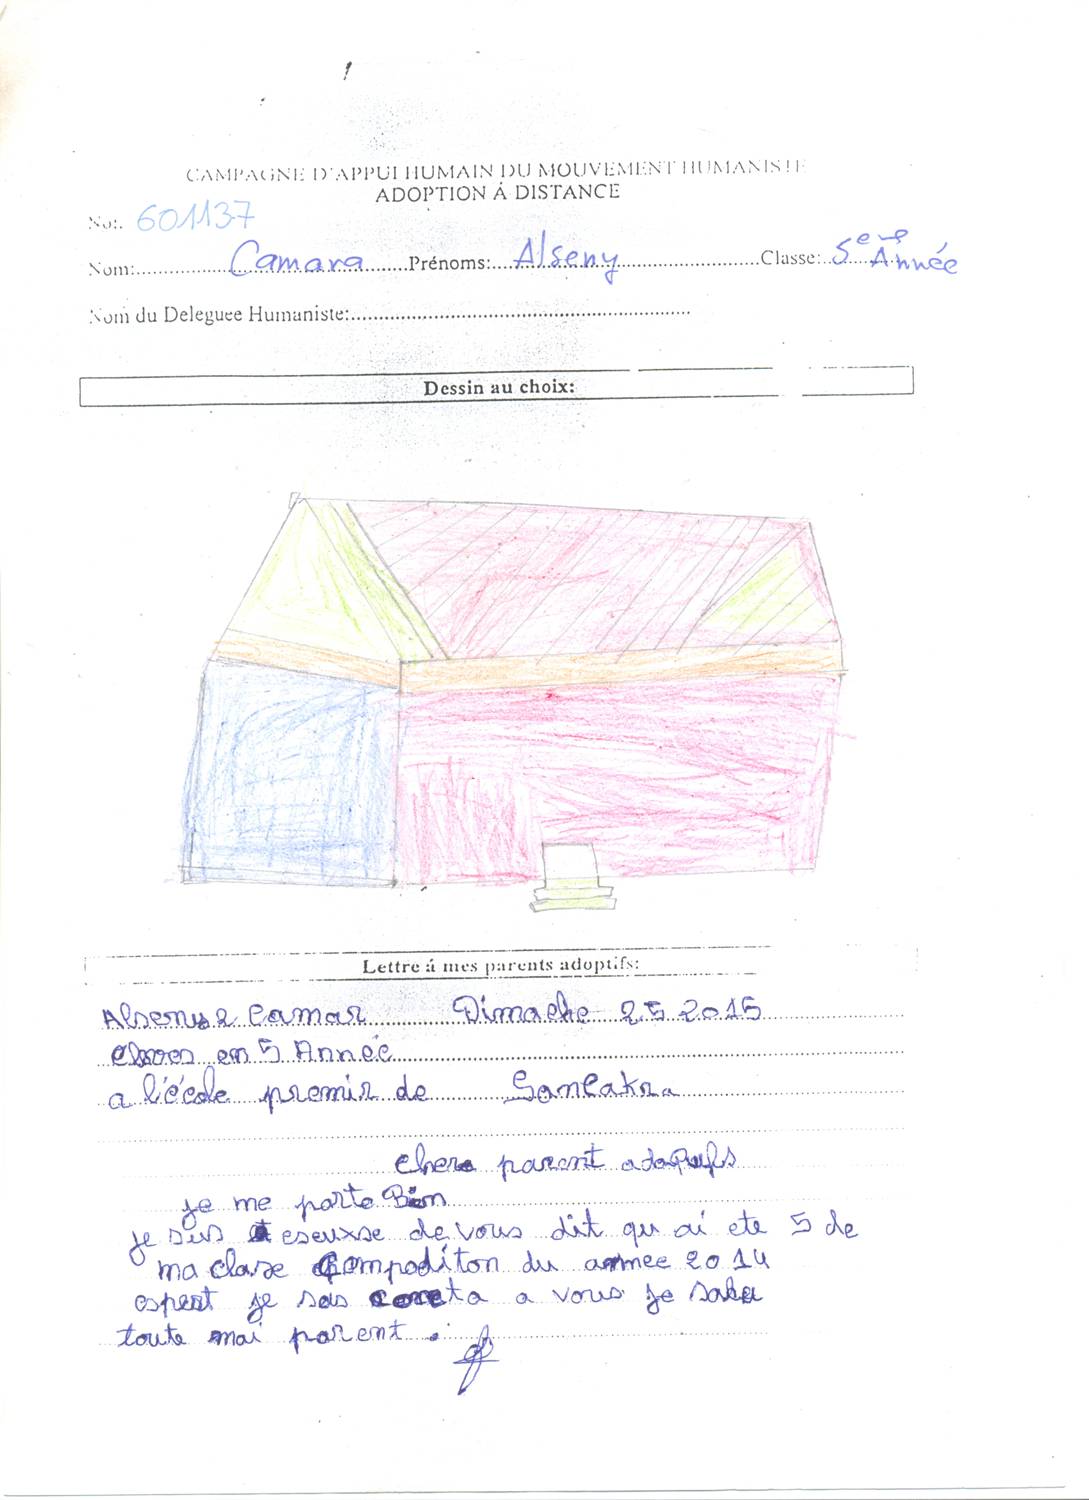 CAMPAGNE D'APPUI HUMAIN DU MOUVEMENT HUMANISTE
ADOPTION Á DISTANCE
No:. 601137
Nom:........Camara........Prénoms:....Alseny........Classe:..5eme Année
Nom du Deleguee Humaniste:........
Dessin au choix:
Lettre á mes parents adoptifs:
Camar Dimache 2.5 2015
en 5 Année
a l'école premir de
cher parent
je me porte Bien
je suis de vous dit qu ai ete 5 de
ma clase du annee 2014
je a vous je
toute mai parent.